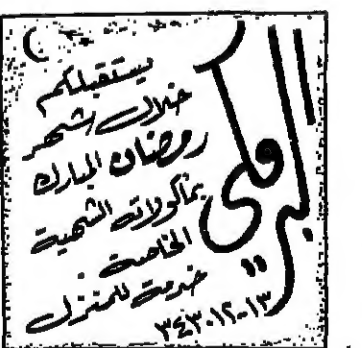 البرمكي
يستقبلكم
خلال شهر
رمضان المبارك
بمأكولاته الشهية
الخاصة
خدمة للمنزل
٣٤٣٠١٢-١٣